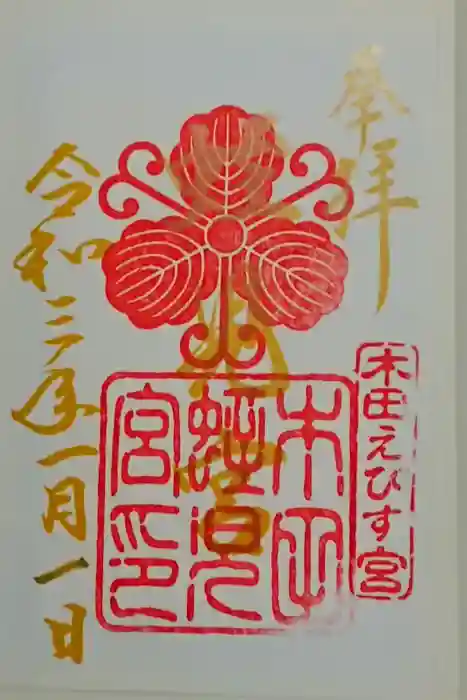 奉拝
木田えびす宮
木田
蛭児
宮印
令和三年一月一日